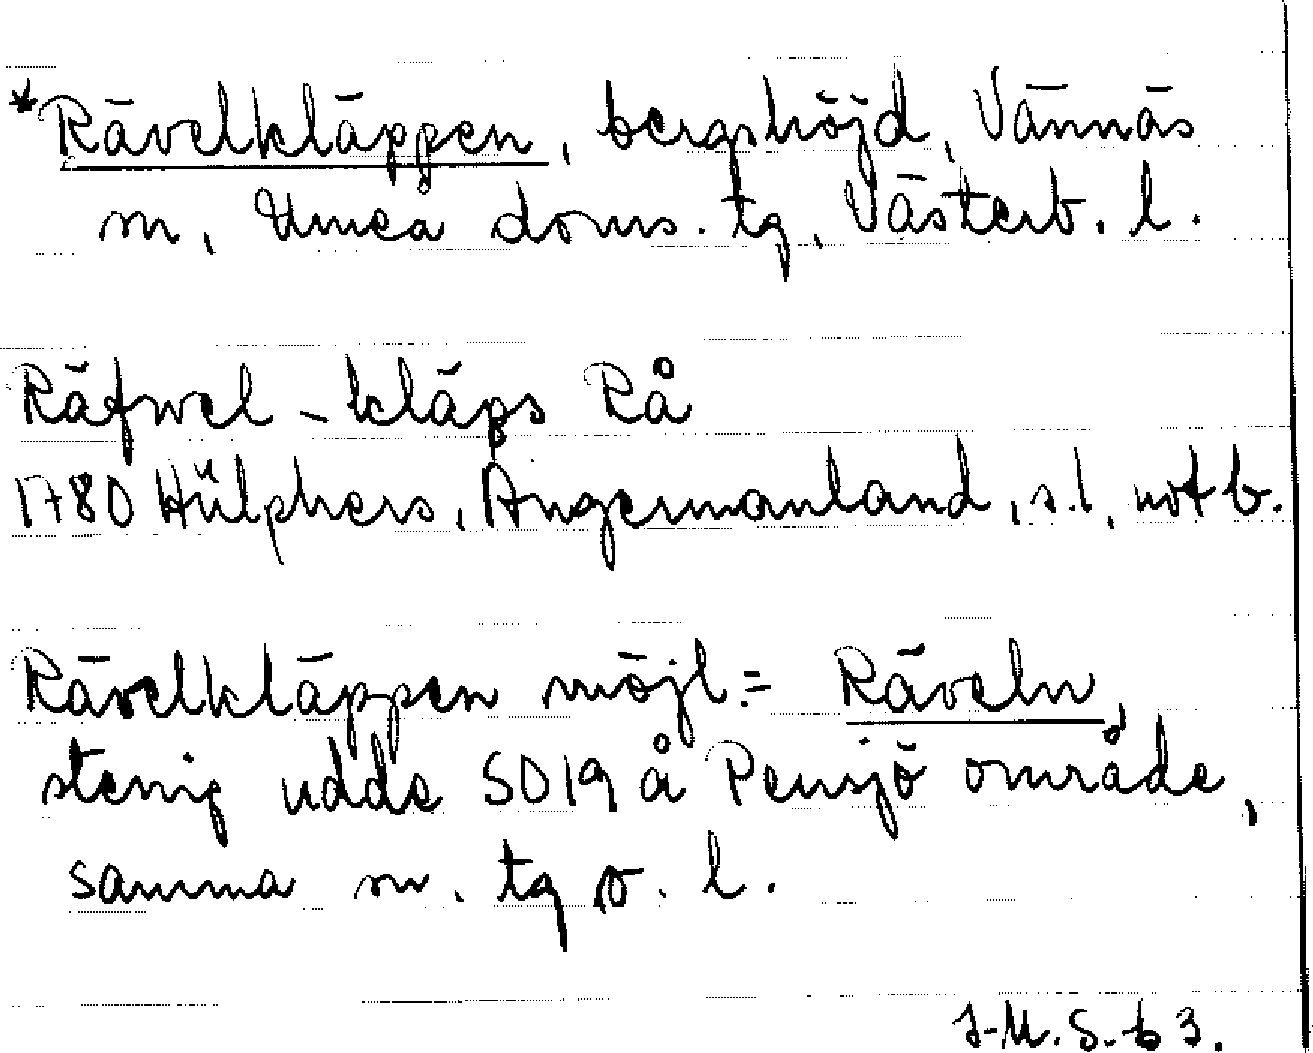 *Rävelkläppen, bergshöjd, Vännäs
sn, Umeå doms. tg, Västerb. l.
Räfwel-kläps Rå
1780 Hülphers, Ångermanland, s.1, not b.
Rävelkläppen möjl. = Räveln,
stenig udde SO 19 å Pensjö område,
samma sn. tg o. l.
J-M.S. 63.